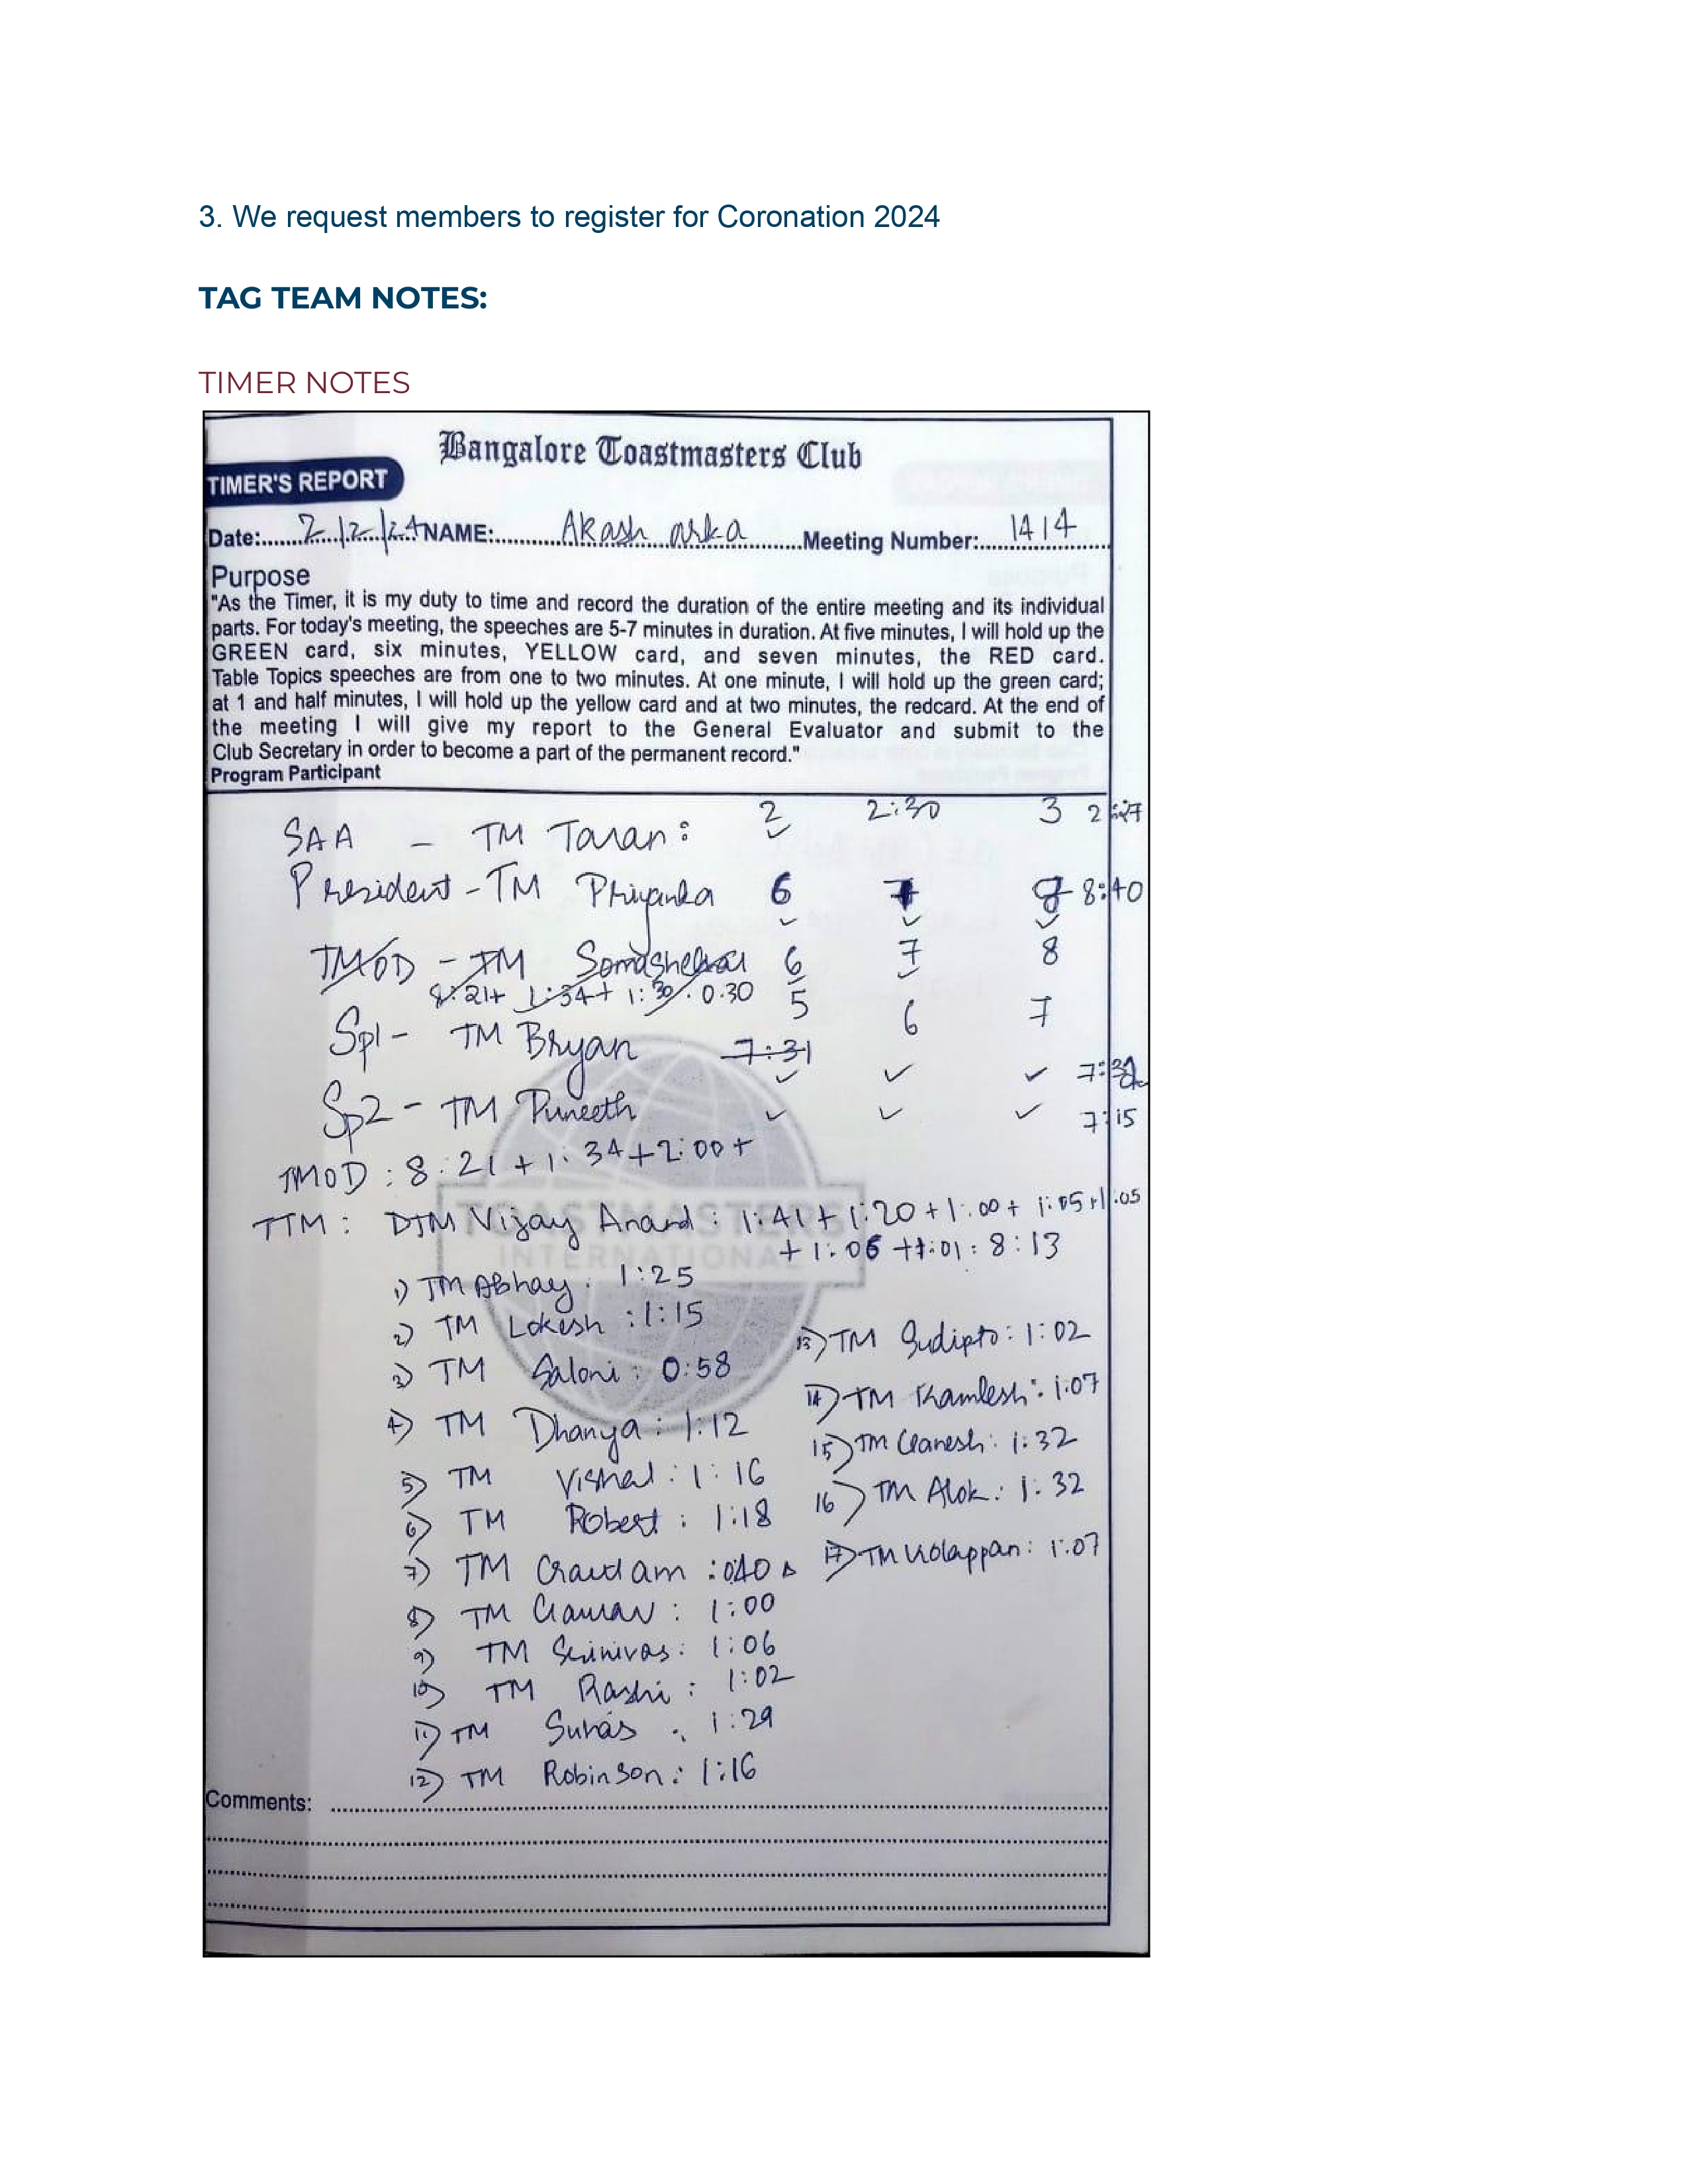 3. We request members to register for Coronation 2024
TAG TEAM NOTES:
TIMER NOTES
Bangalore Toastmasters Club
TIMER'S REPORT
Date:.......2/2/24 NAME:...........Akash arka............Meeting Number:......1414
Purpose
"As the Timer, it is my duty to time and record the duration of the entire meeting and its individual
parts. For today's meeting, the speeches are 5-7 minutes in duration. At five minutes, I will hold up the
GREEN card, six minutes, YELLOW card, and seven minutes, the RED card.
Table Topics speeches are from one to two minutes. At one minute, I will hold up the green card;
at 1 and half minutes, I will hold up the yellow card and at two minutes, the redcard. At the end of
the meeting I will give my report to the General Evaluator and submit to the
Club Secretary in order to become a part of the permanent record."
Program Participant
SAA - TM Taran: 2 2:30 3 2:27
President - TM Priyanka 6 7 8 8:40
TMOD - TM Somashekar 6 7 8
8:21+ 1:34+ 1:30. 0.30 5 6 7
Sp1- TM Bryan 7:31
Sp2 - TM Puneeth 7:15
TMOD : 8:21 + 1:34+2:00+
TTM : DTM Vijay Anand : 1:41 + 1:20 + 1:00 + 1:05+1:05
+ 1:06 +1:01 : 8:13
TOASTMASTERS
INTERNATIONAL
1) TM Abhay : 1:25
2) TM Lokesh : 1:15
3) TM Saloni : 0:58
4) TM Dhanya : 1:12
5) TM Vishal : 1:16
6) TM Robert : 1:18
7) TM Gautam : 0:40
8) TM Gaurav : 1:00
9) TM Srinivas : 1:06
10) TM Rashi : 1:02
11) TM Suhas : 1:29
12) TM Robinson : 1:16
13) TM Sudipto : 1:02
14) TM Kamlesh : 1:07
15) TM Ganesh : 1:32
16) TM Alok : 1:32
17) TM Kolappan : 1:07
Comments: